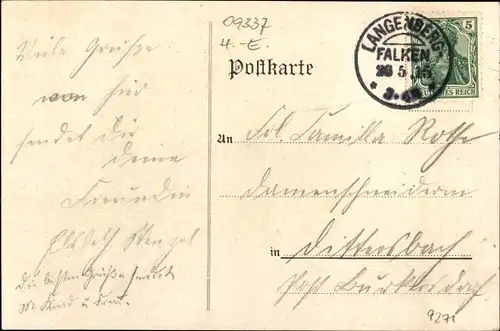 09337
4.-E.
LANGENBERG
FALKEN
20 5 15
3-4N
5
DEUTSCHES REICH
Postkarte
Viele Grüsse
von hier
sendet Dir
deine
Freundin
Elsbeth Stenzel
die besten Grüße sendet
An Frl. Camilla Rothe
Damenschneiderin
in Dittersbach
Post Burkersdorf
9271